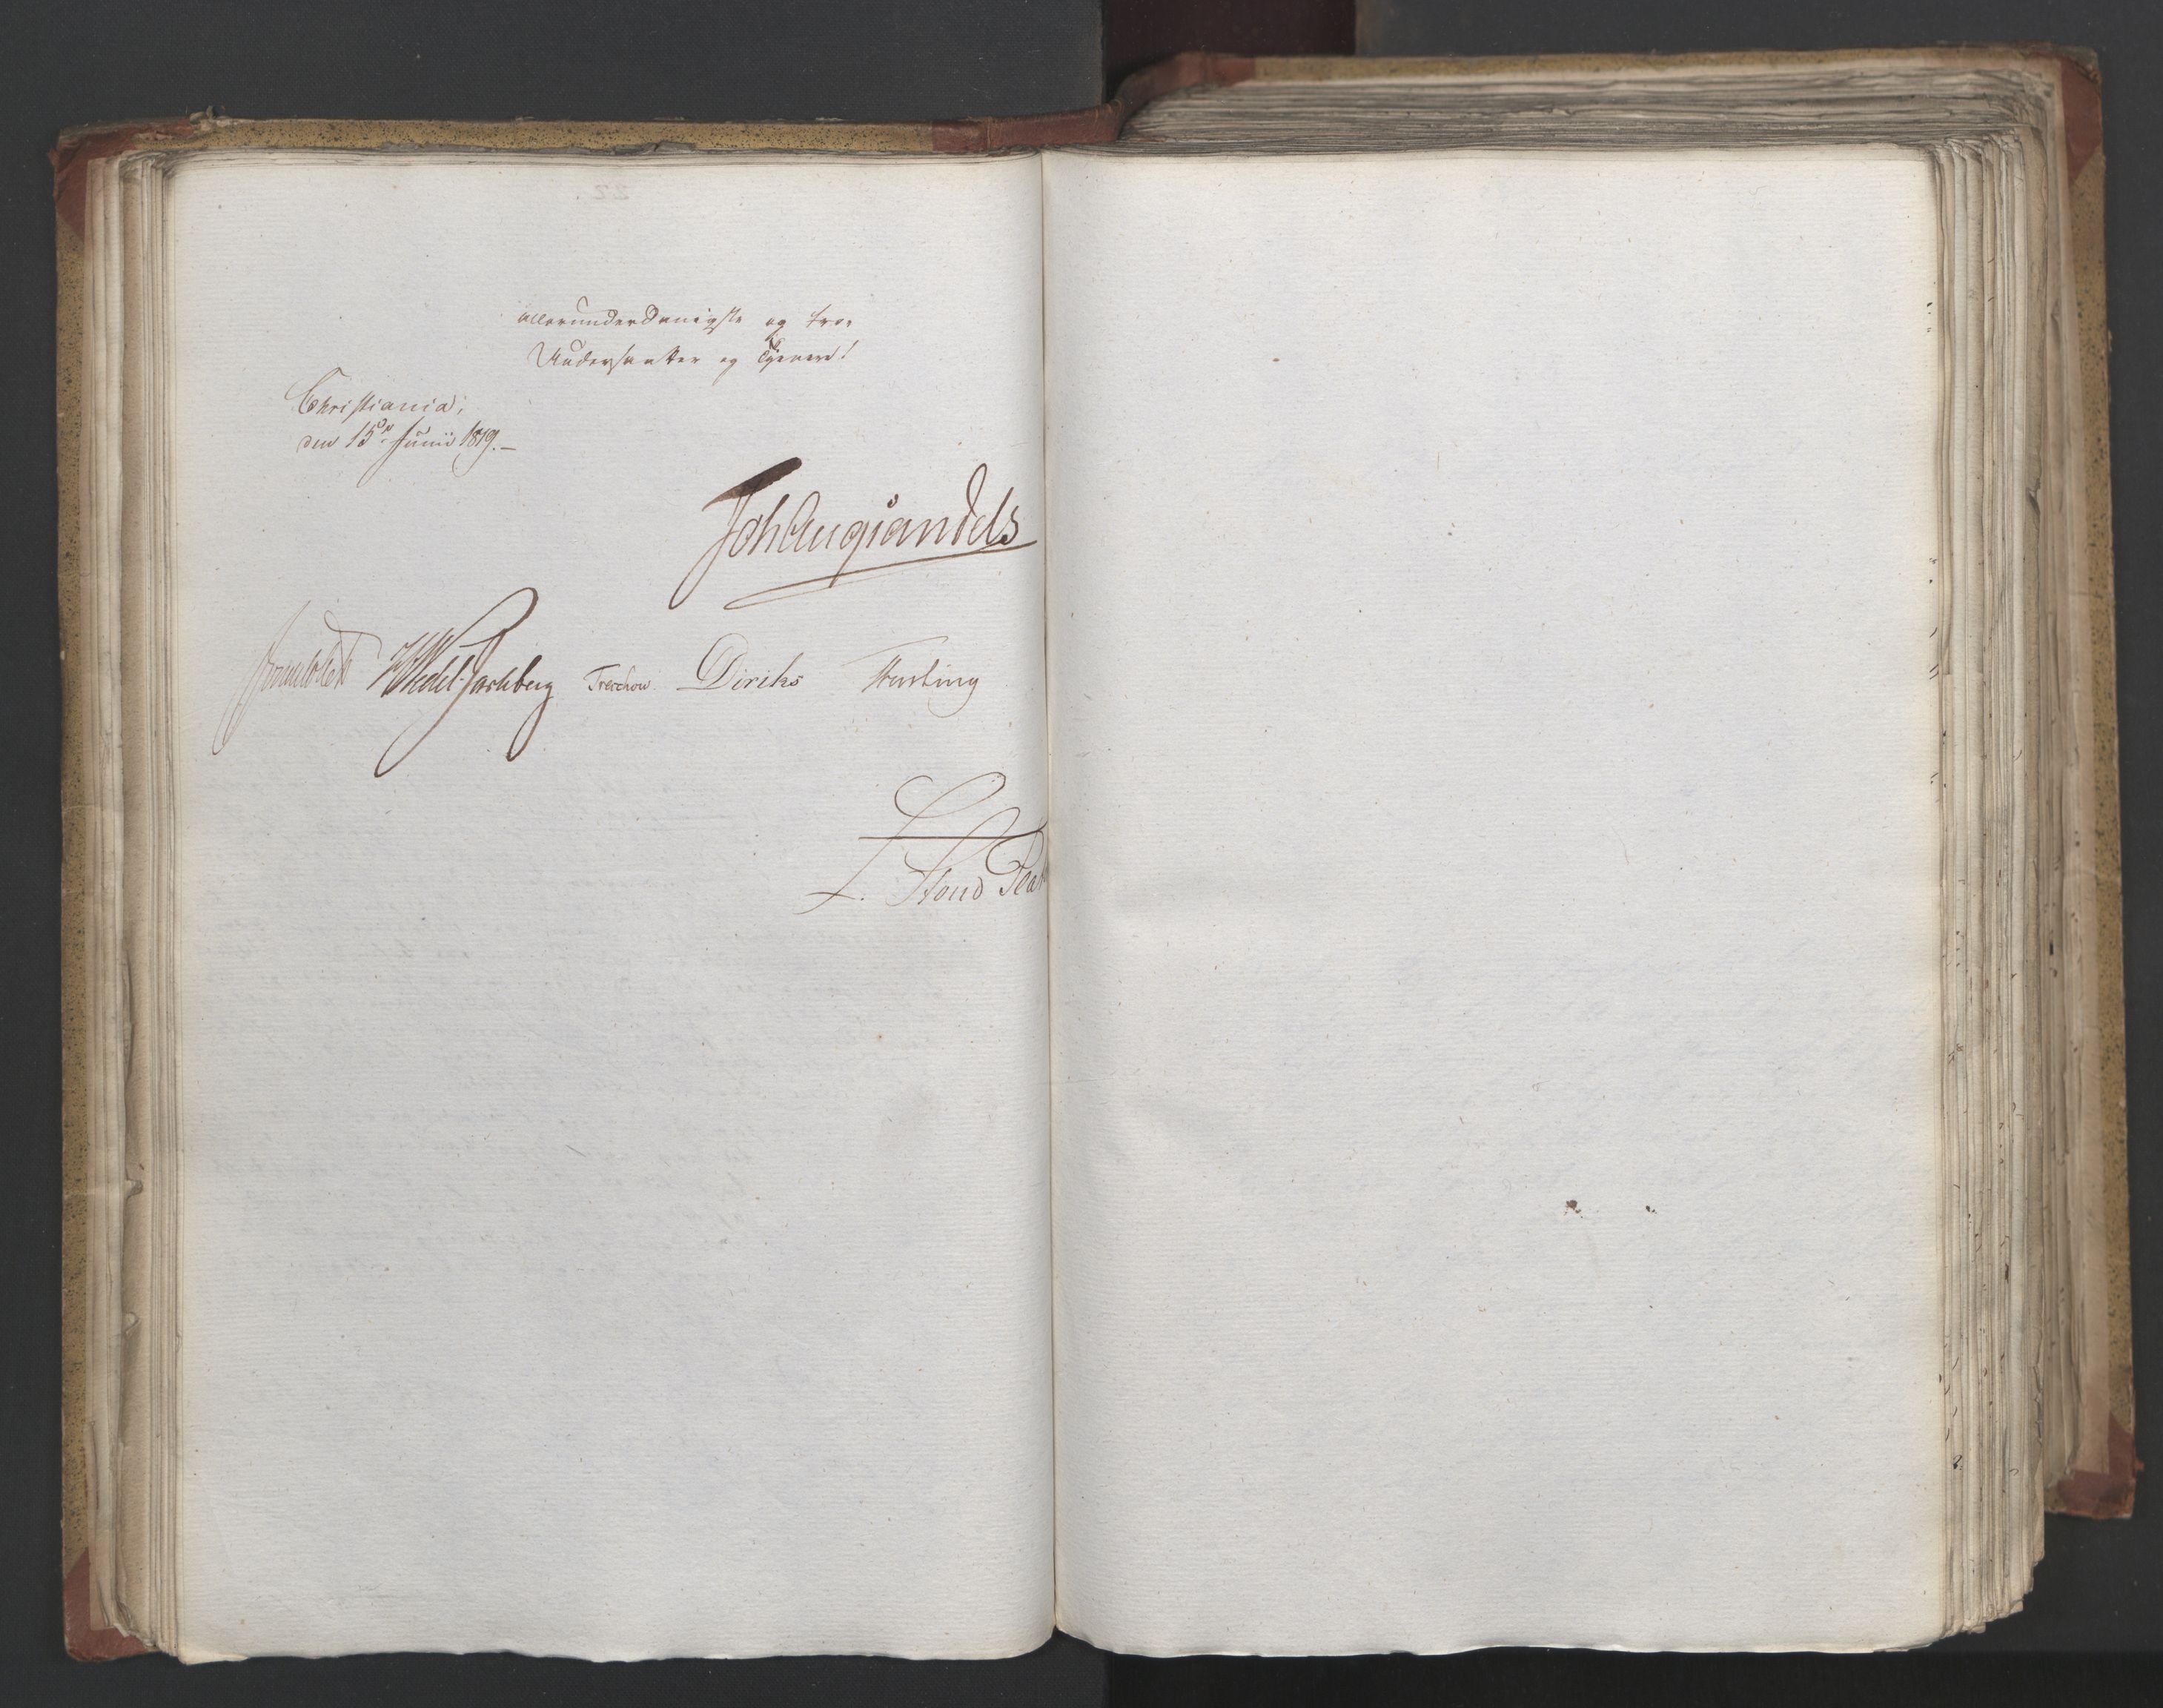 allerunderdanigste og troe
Undersaatter og Tjenere!
Christiania,
den 15de Junii 1819.-
Joh Aug Sandels
Sommerfeldt HWedel-Jarlsberg Treschow. Diriks Fasting
L. Stoud Plat